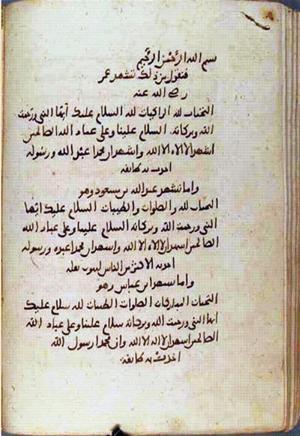 بسم الله الرحمن الرحيم
فنقول من ذلك تشهد عمر
رضي الله عنه
التحيات لله الزاكيات لله السلام عليك أيها النبي ورحمت
الله وبركاته السلام علينا وعلى عباد الله الصالحين
اشهد ان لا اله الا الله واشهد ان محمدا عبد الله ورسوله
به طائفة
واما تشهد عبد الله بن مسعود وهو
التحيات لله والصلوات والطيبات السلام عليك ايها
النبي ورحمت الله وبركاته السلام علينا وعلى عباد الله
الصالحين اشهد ان لا اله الا الله واشهد ان محمدا عبده ورسوله
الناس
واما تشهد ابن عباس وهو
التحيات المباركات الصلوات الطيبات لله سلام عليك
ايها النبي ورحمت الله وبركاته سلام علينا وعلى عباد الله
الصالحين اشهد ان لا اله الا الله وان محمدا رسول الله
به طائفة